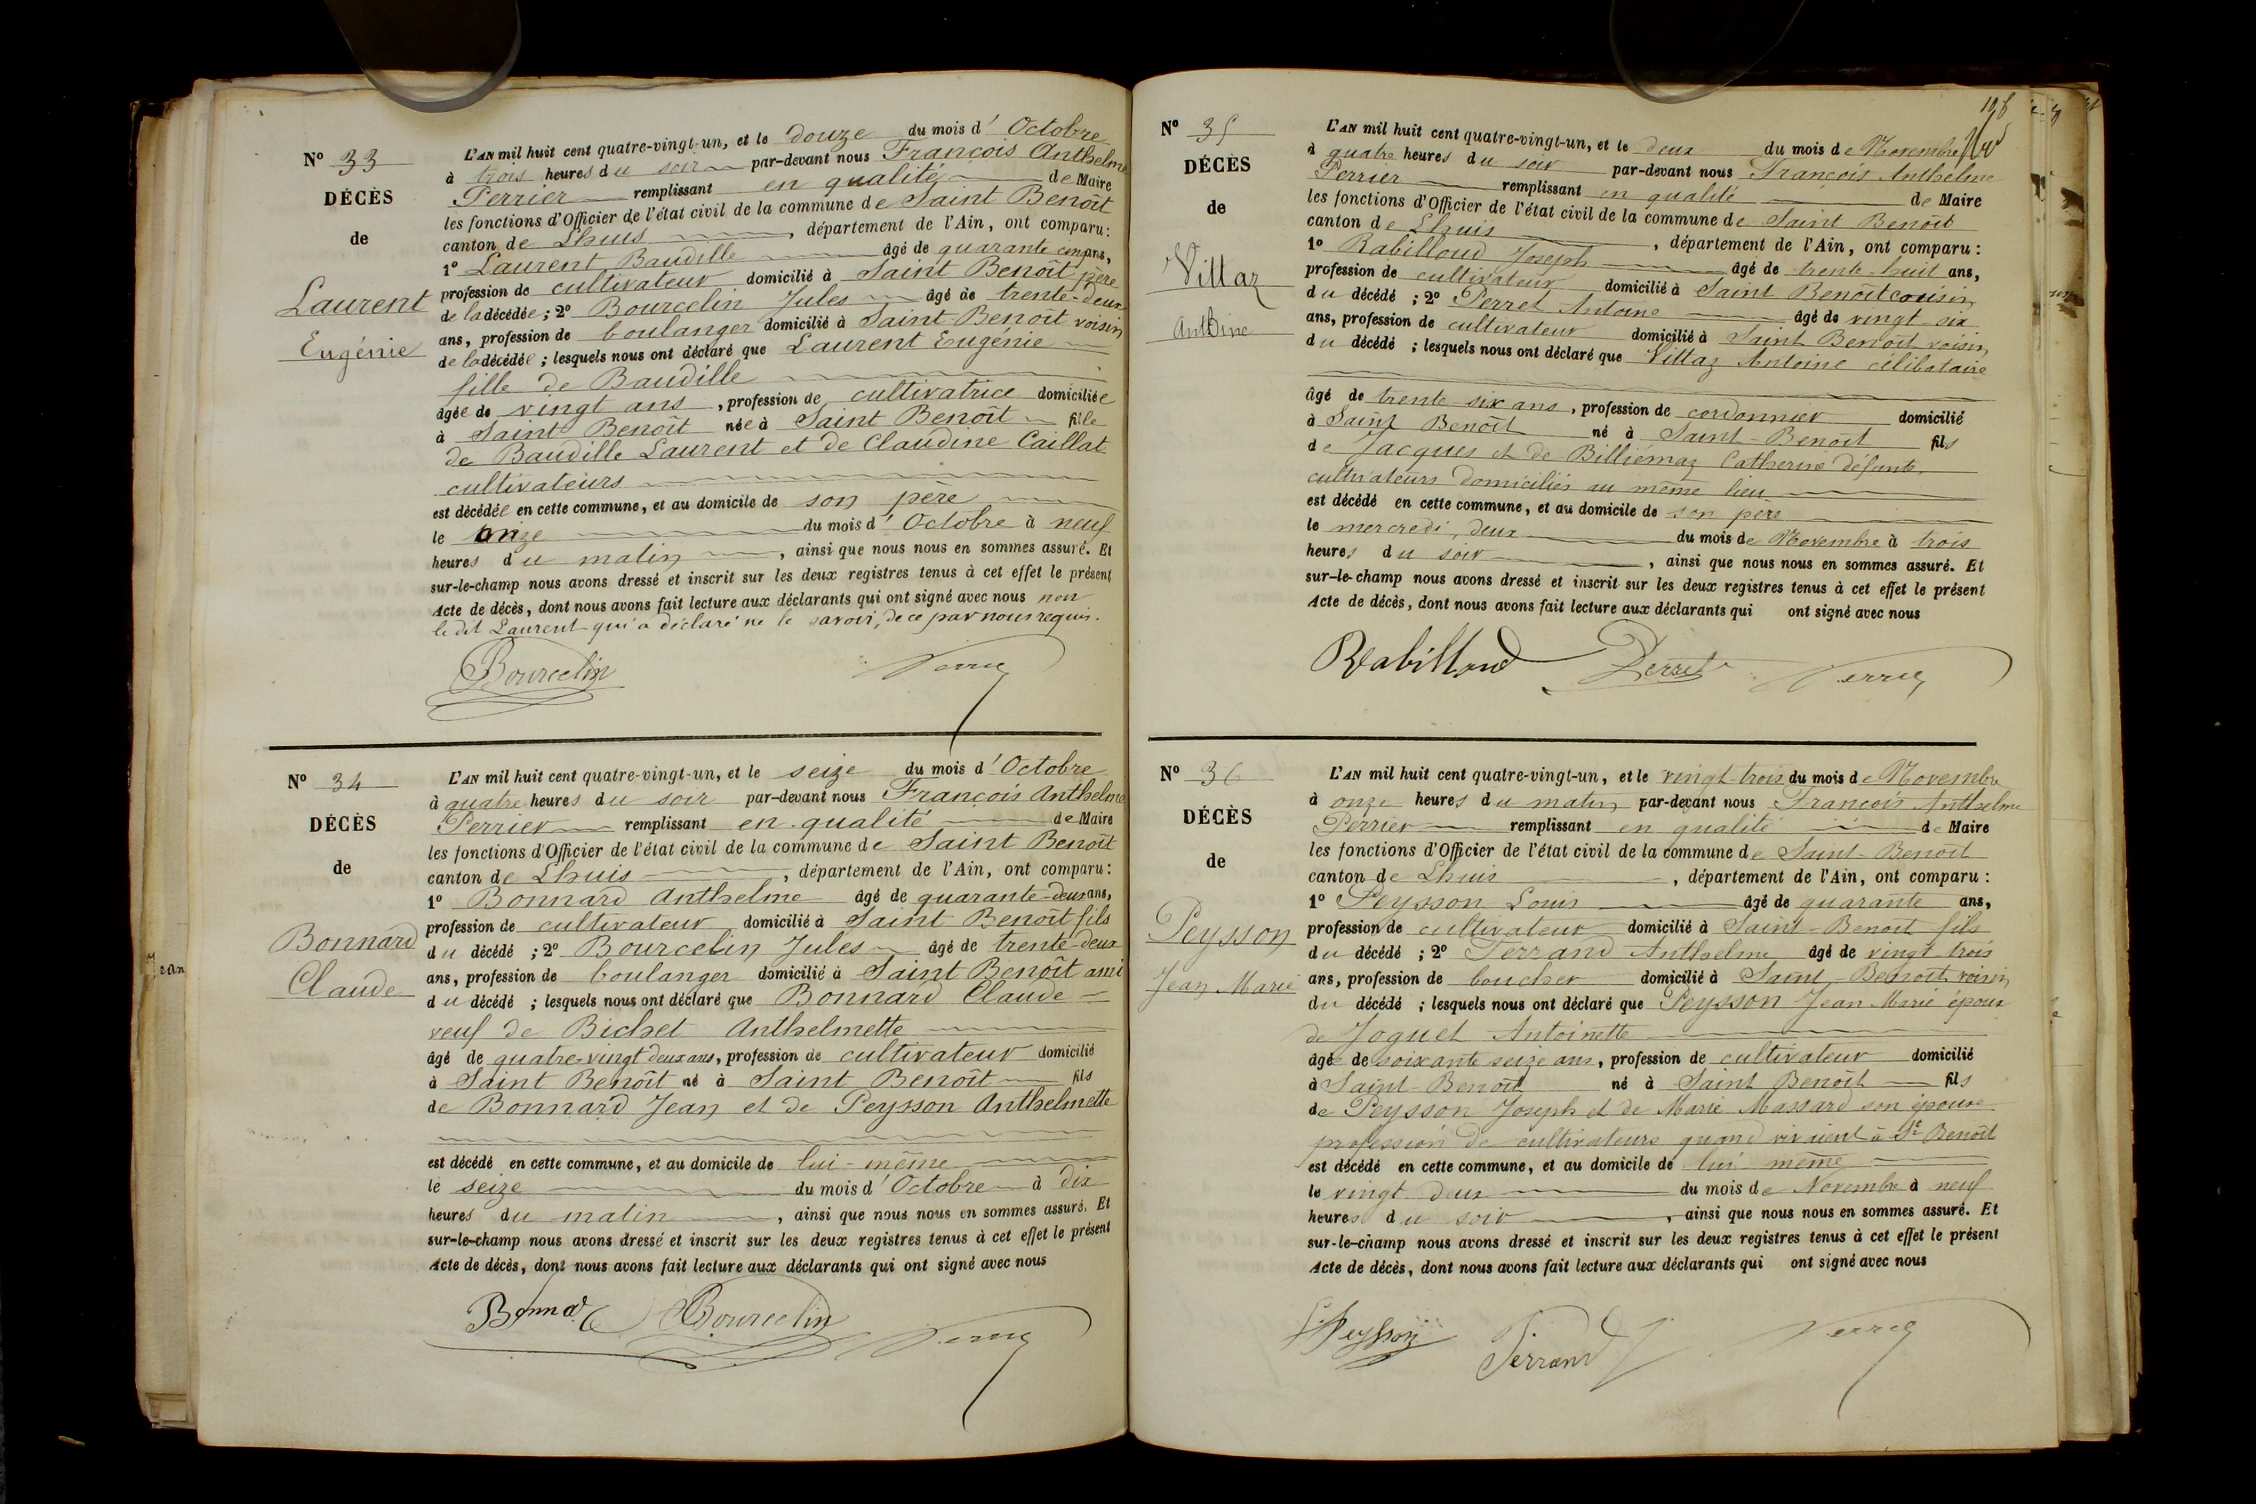 N° 33
DÉCÈS
de
Laurent
Eugénie
L'AN mil huit cent quatre-vingt-un, et le douze du mois d'Octobre
à trois heures du soir par-devant nous François Anthelme
Perrier remplissant en qualité de Maire
les fonctions d'Officier de l'état civil de la commune de Saint Benoît
canton de Lhuis, département de l'Ain, ont comparu:
1° Laurent Baudille âgé de quarante cinq ans,
profession de cultivateur domicilié à Saint Benoît père
de la décédée; 2° Bourcelin Jules âgé de trente-deux
ans, profession de boulanger domicilié à Saint-Benoît voisin
de la décédée; lesquels nous ont déclaré que Laurent Eugénie
fille de Baudille
âgée de vingt ans, profession de cultivatrice domiciliée
à Saint Benoît née à Saint Benoît fille
de Baudille Laurent et de Claudine Caillat
cultivateurs
est décédée en cette commune, et au domicile de son père
le onze du mois d'Octobre à neuf
heures du matin, ainsi que nous nous en sommes assuré. Et
sur-le-champ nous avons dressé et inscrit sur les deux registres tenus à cet effet le présent
Acte de décès, dont nous avons fait lecture aux déclarants qui ont signé avec nous non
le dit Laurent qui a déclaré ne le savoir, de ce par nous requis.
Bourcelin Perrier
N° 34
DÉCÈS
de
Bonnard
Claude
L'AN mil huit cent quatre-vingt-un, et le seize du mois d'Octobre
à quatre heures du soir par-devant nous François Anthelme
Perrier remplissant en qualité de Maire
les fonctions d'Officier de l'état civil de la commune de Saint Benoît
canton de Lhuis, département de l'Ain, ont comparu:
1° Bonnard Anthelme âgé de quarante-deux ans,
profession de cultivateur domicilié à Saint Benoît fils
du décédé; 2° Bourcelin Jules âgé de trente-deux
ans, profession de boulanger domicilié à Saint Benoît ami
du décédé; lesquels nous ont déclaré que Bonnard Claude
veuf de Bichet Anthelmette
âgé de quatre-vingt deux ans, profession de cultivateur domicilié
à Saint Benoît né à Saint Benoît fils
de Bonnard Jean et de Peysson Anthelmette
est décédé en cette commune, et au domicile de lui-même
le seize du mois d'Octobre à dix
heures du matin, ainsi que nous nous en sommes assuré. Et
sur-le-champ nous avons dressé et inscrit sur les deux registres tenus à cet effet le présent
Acte de décès, dont nous avons fait lecture aux déclarants qui ont signé avec nous
Bonnard Bourcelin Perrier
N° 35
DÉCÈS
de
Vittaz
Antoine
L'AN mil huit cent quatre-vingt-un, et le deux du mois de Novembre
à quatre heures du soir par-devant nous François Anthelme
Perrier remplissant en qualité de Maire
les fonctions d'Officier de l'état civil de la commune de Saint Benoît
canton de Lhuis, département de l'Ain, ont comparu:
1° Rabilloud Joseph âgé de trente-huit ans,
profession de cultivateur domicilié à Saint Benoît cousin
du décédé; 2° Perret Antoine âgé de vingt-six
ans, profession de cultivateur domicilié à Saint Benoît voisin
du décédé; lesquels nous ont déclaré que Vittaz Antoine célibataire
âgé de trente-six ans, profession de cordonnier domicilié
à Saint Benoît né à Saint-Benoît fils
de Jacques et de Billiémaz Catherine défunte
cultivateurs domiciliés au même lieu
est décédé en cette commune, et au domicile de son père
le mercredi, deux du mois de Novembre à trois
heures du soir, ainsi que nous nous en sommes assuré. Et
sur-le-champ nous avons dressé et inscrit sur les deux registres tenus à cet effet le présent
Acte de décès, dont nous avons fait lecture aux déclarants qui ont signé avec nous
Rabilloud Perret Perrier
N° 36
DÉCÈS
de
Peysson
Jean Marie
L'AN mil huit cent quatre-vingt-un, et le vingt-trois du mois de Novembre
à onze heures du matin par-devant nous François Anthelme
Perrier remplissant en qualité de Maire
les fonctions d'Officier de l'état civil de la commune de Saint-Benoît
canton de Lhuis, département de l'Ain, ont comparu:
1° Peysson Louis âgé de quarante ans,
profession de cultivateur domicilié à Saint-Benoît fils
du décédé; 2° Ferrand Anthelme âgé de vingt trois
ans, profession de boucher domicilié à Saint-Benoît voisin
du décédé; lesquels nous ont déclaré que Peysson Jean Marie époux
de Joguet Antoinette
âgé de soixante seize ans, profession de cultivateur domicilié
à Saint-Benoît né à Saint Benoît fils
de Peysson Joseph et de Marie Massard son épouse
profession de cultivateurs quand vivaient à St Benoît
est décédé en cette commune, et au domicile de lui-même
le vingt deux du mois de Novembre à neuf
heures du soir, ainsi que nous nous en sommes assuré. Et
sur-le-champ nous avons dressé et inscrit sur les deux registres tenus à cet effet le présent
Acte de décès, dont nous avons fait lecture aux déclarants qui ont signé avec nous
L. Peysson Ferrand Perrier